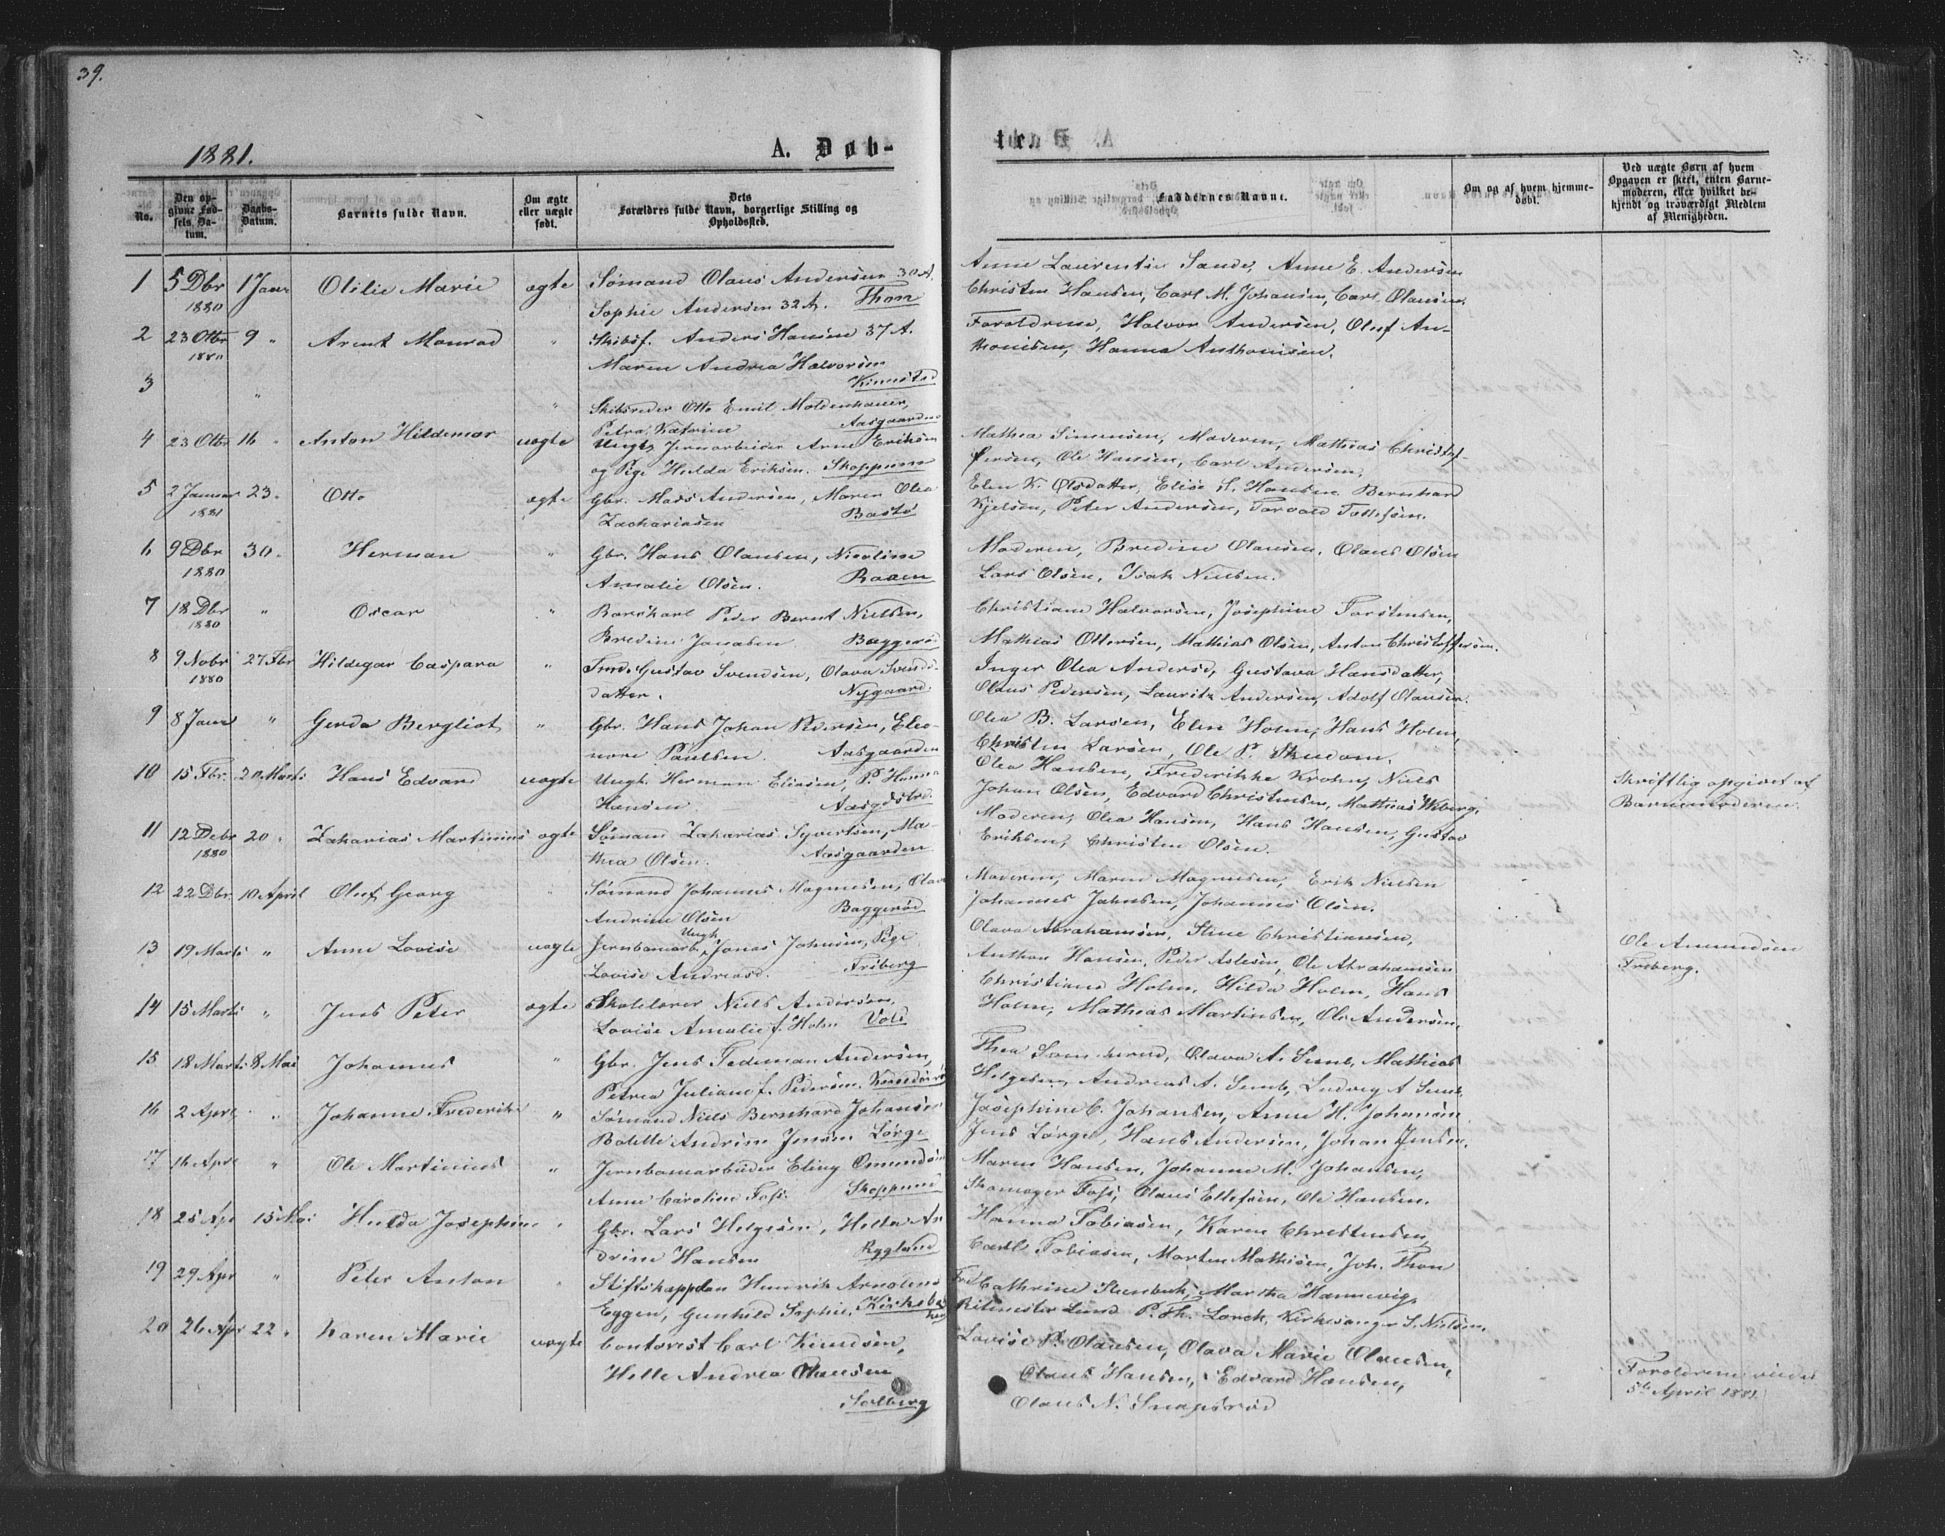 39.
1881.
A. Døb-
te.
No.
Den op-
givne Fød-
sels Da-
tum.
Daabs-
Datum.
Barnets fulde Navn.
Om ægte
eller uægte
født.
Dets
Forældres fulde Navn, borgerlige Stilling og
Opholdssted.
Faddernes Navne.
Om og af hvem hjemme-
døbt.
Ved uægte Børn af hvem
Opgaven er skeet, enten Barne-
moderen, eller hvilket be-
kjendt og troværdigt Medlem
af Menigheden.
1 5 Dbr 1880 1 Janr Otilie Marie ægte Sømand Olaus Andersen 30 A.
Sophie Andersen 32 A. Thon
Anne Laurentse Sande, Anne E. Andersen
Christen Hansen, Carl M. Johansen, Carl Olausen.
2 23 Otbr 1880 9 " Arent Monrad " Skibsf. Anders Hansen 37 A.
Maren Andrea Halvorsen
Kinnstad
Forældrene, Halvor Andersen, Oluf An-
thonisen, Hanna Anthonisen.
3 " " Skibsreder Otto Emil Moldenhauer,
Petra Katrine Aasgaarden
4 23 Otbr 16 " Anton Hildemar uægte Ungk. Jernarbeider Arne Eriksen
og Pige Hilda Eriksen. Skoppum
Mathea Simensen, Moderen, Mathias Christof
fersen, Ole Hansen, Carl Andersen.
5 2 Januar 1881 23 " Otto ægte Gbr. Mads Andersen, Maren Olea
Zachariasen Bastø
Elen K. Olsdatter, Elise H. Hansen Bernhard
Kjelsen, Peter Andersen, Torvald Tollefsen.
6 9 Dbr 1880 30 " Herman " Gbr. Hans Olausen, Nicoline
Amalie Olsen. Raaen
Moderen, Bredine Olausen, Olaus Olsen
Lars Olsen, Isak Nielsen.
7 18 Dbr 1880 " Oscar " Peder Bernt Nielsen,
Bredine Jonasen Baggerød
Christiane Halvorsen, Josephine Torstensen,
Mathias Ottersen, Mathias Olsen, Anton Christoffersen.
8 9 Nobr 1880 27 Fbr Hildegar Caspara " Tmd. Gustav Svendsen, Olava Svends-
datter. Nygaard
Inger Olea Andersd, Gustava Hansdatter,
Olaus Pedersen, Lauritz Andersen, Adolf Olausen.
9 8 Janr " Gerda Bergliot " Gbr. Hans Johan Pedersen, Eleo-
nore Paulsen. Aasgaarden
Olea B. Larsen, Elen Holm, Hans Holm,
Christen Larsen, Ole P. Skudom.
10 15 Fbr. 20 Marts Hans Edvard uægte Ungk. Herman Eliasen, P. Hanna
Hansen Aasgdstrd.
Olea Hansen, Frederikke Krohn, Niels
Johan Olsen, Edvard Christensen, Mathias Wiberg.
Skriftlig opgivet af
Barnemoderen.
11 12 Debr 1880 20 " Zakarias Martinius ægte Sømand Zakarias Syvertsen, Ma-
thea Olsen. Aasgaarden
Moderen, Olea Hansen, Hans Hansen, Gustav
Eriksen, Christen Olsen.
12 22 Dbr. 10 April Oluf Georg " Sømand Johannes Magnusen, Olava
Andrine Olsen Baggerød
Moderen, Maren Magnusen, Erik Nielsen
Johannes Johnsen, Johannes Olsen.
13 19 Marts " Anne Lovise uægte Jernbanearb. Ungk. Jonas Johnsen, Pige
Lovise Andreasd. Friberg
Olava Abrahamsen, Stine Christiansen,
Anthon Hansen, Peder Aslesen, Ole Abrahamsen
Ole Amundsen
Friberg.
14 15 Marts " Jens Peter ægte Skolelærer Niels Andersen,
Lovise Amalie f. Holm Vold
Christiane Holm, Hilda Holm, Hans
Holm, Mathias Martinsen, Ole Andersen.
15 18 Marts 8 Mai Johannes " Gbr. Jens Tideman Andersen,
Petrea Juliane f. Pedersen.
Thea, Olava A. Semb, Mathias
Helgesen, Andreas A. Semb, Ludvig A Semb.
16 2 Apr " Johanne Frederike " Sømand Niels Bernhard Johansen
Bolette Andrine Jensen Lørge
Josephine C. Johansen, Anne H. Johansen
Jens Lørge, Hans Andersen, Johan Jensen.
17 16 Apr " Ole Martinius " Jernbanearbeider Eling Omundsen
Anne Caroline Foss. Skoppum
Maren Hansen, Johanne M. Johansen,
Skomager Foss, Olaus Ellefsen, Ole Hansen.
18 25 Apr 15 Mai Hulda Josephine " Gbr. Lars Helgesen, Hella An
drine Hansen Rygland
Hanna Tobiasen, Karen Christensen,
Carl Tobiasen, Morten Mathisen, Joh. Thon
19 29 Apr " Peter Anton " Stiftskappelan Henrik Arnoldus
Eggen, Gunhild Sophie,
Cathrine Stenbuch, Martha Hannevig,
Ritmester Lund P. Th. Lorck, Kirkesanger S. Nielsen.
20 26 Apr 22 " Karen Marie uægte Contorist Carl Knudsen,
Helle Andrea Olausen
Solberg
Lovise P. Olausen, Olava Marie Olausen,
Olaus Hansen, Edvard Hansen,
Olaus N. Snapsrød
Forældrene viede
5te April 1881.